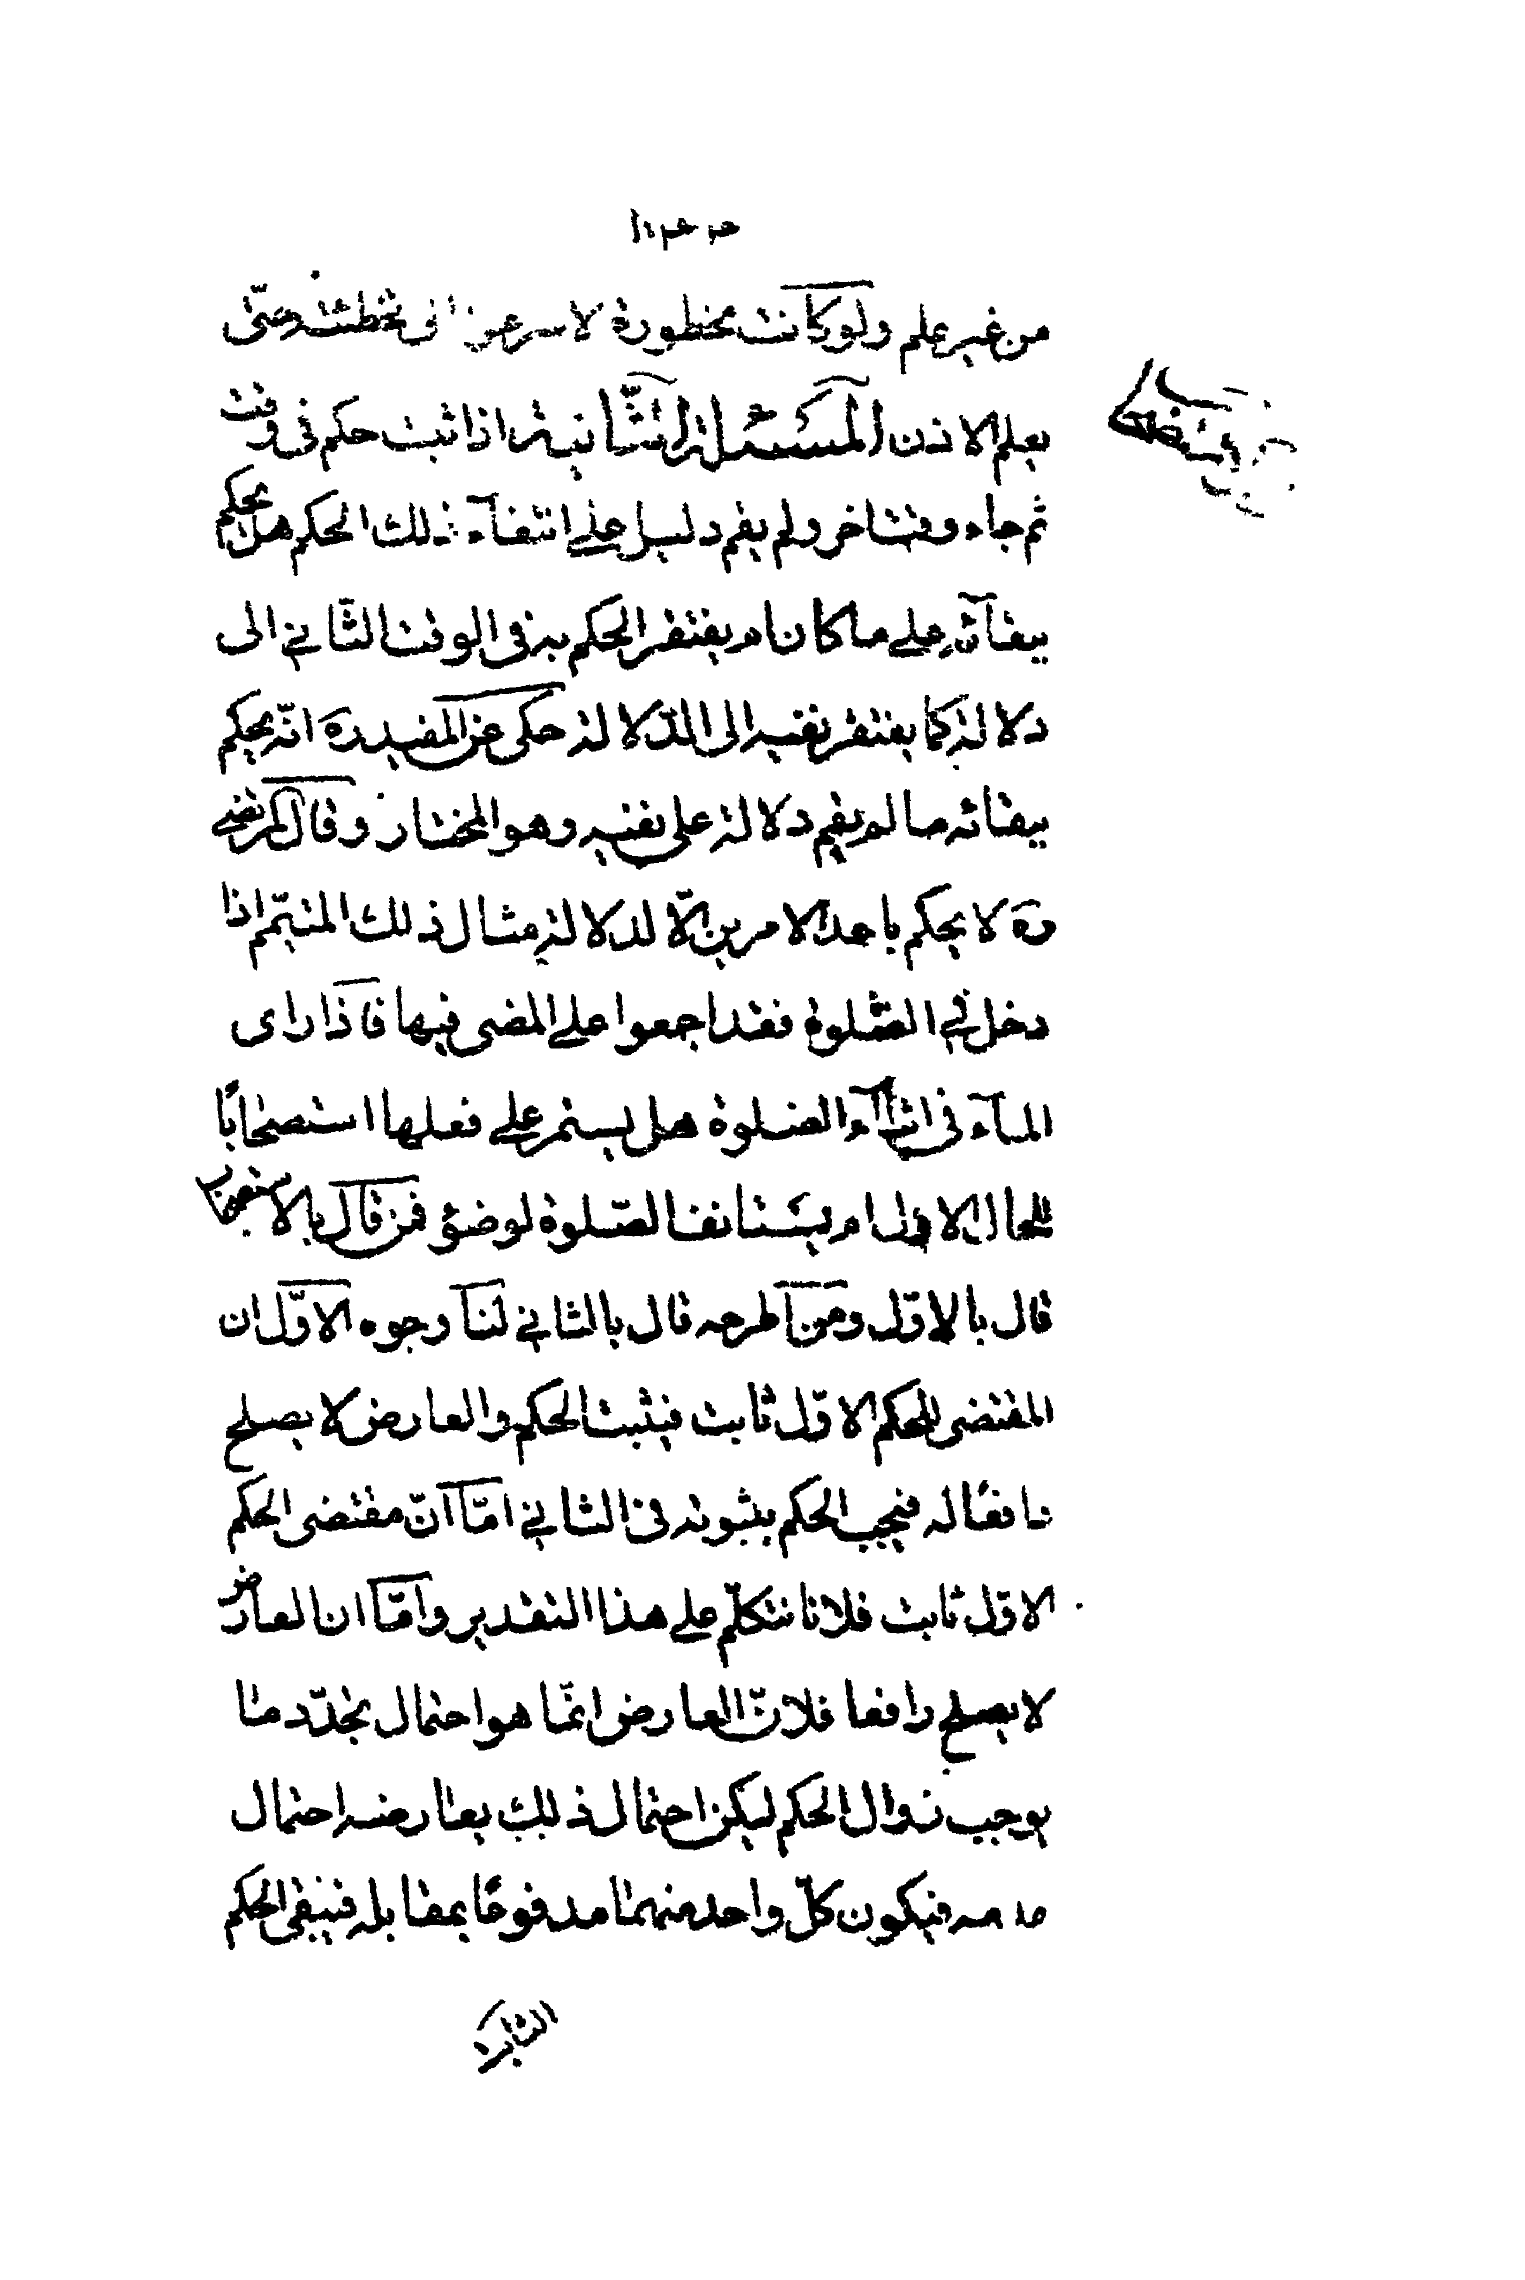 من غير علم ولو كانت محظورة لاسرعن الى تخطئته حتى
يعلم الاذن المسئلة الثانية اذا ثبت حكم فى وقت
ثم جاء وقت اخر ولم يقم دليل على انتفآء ذلك الحكم هل يحكم
ببقآئه على ما كان ام يفتقر الحكم به فى الوقت الثاني الى
دلالة كما يفتقر نفيه الى الدلالة حكى عن المفيد ره انّه يحكم
ببقائه ما لم يقم دلالة على نفيه وهو المختار وقال المرتضى
ره لا يحكم باحد الامرين الّا لدلالة مثال ذلك المتيمّم اذا
دخل في الصّلوة فقد اجمعوا على المضى فيها فاذا راى
المآء فى اثنآء الصلوة هل يستمر على فعلها استصحابًا
للحال الاول ام يستانف الصّلوة لوضؤ فمن قال بالاستصحاب
قال بالاوّل ومن اطرحه قال بالثاني لنا وجوه الاوّل ان
المقتضى للحكم الاوّل ثابت فيثبت الحكم والعارض لا يصلح
رافعًا له فيجب الحكم بثبوته فى الثاني امّا انّ مقتضى الحكم
الاوّل ثابت فلانا نتكلّم على هذا التقدير وامّا ان العارض
لا يصلح رافعا فلانّ العارض انّما هو احتمال تجدّد ما
يوجب زوال الحكم ليكن احتمال ذلك يعارضه احتمال
عدمه فيكون كلّ واحد منهما مدفوعًا بمقابله فيبقى الحكم
الثابت